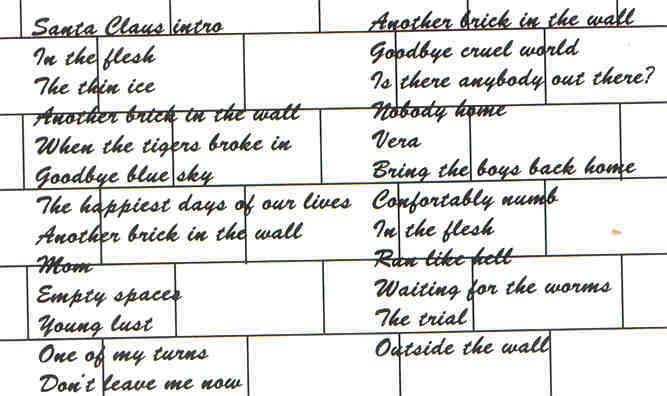 Santa Claus intro
In the flesh
The thin ice
Another brick in the wall
When the tigers broke in
Goodbye blue sky
The happiest days of our lives
Another brick in the wall
Mom
Empty spaces
Young lust
One of my turns
Don't leave me now
Another brick in the wall
Goodbye cruel world
Is there anybody out there?
Nobody home
Vera
Bring the boys back home
Confortably numb
In the flesh
Run like hell
Waiting for the worms
The trial
Outside the wall